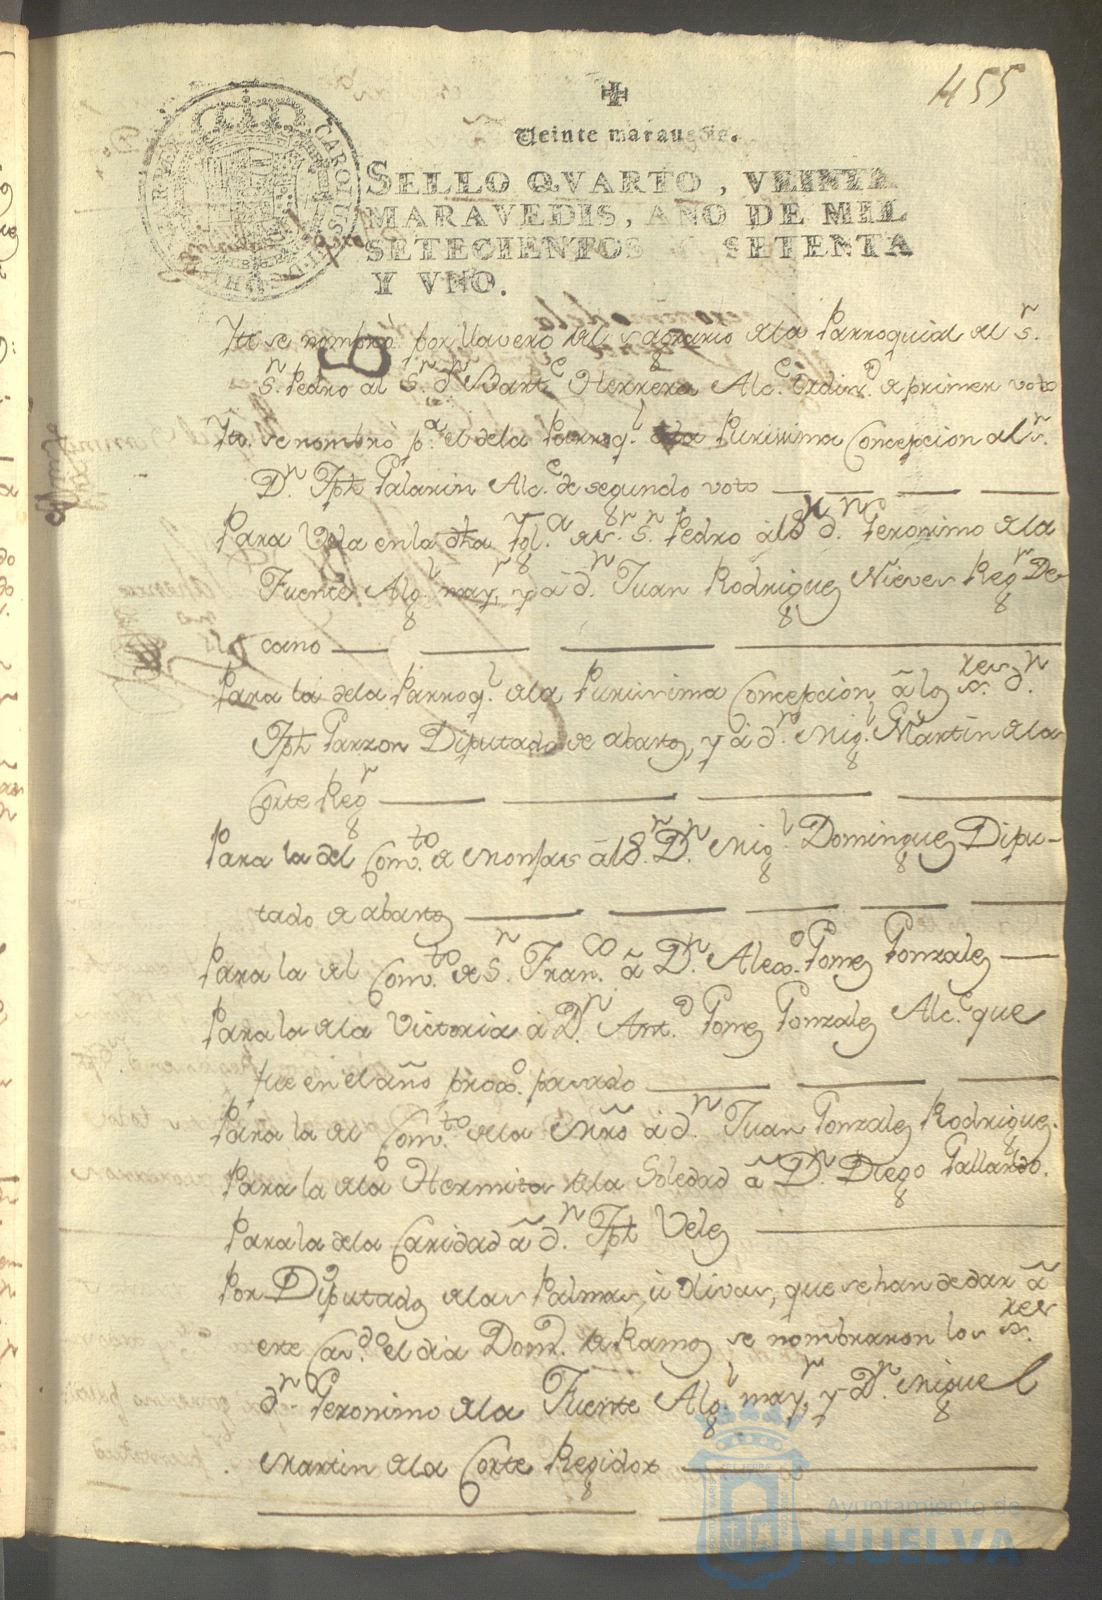 455
Veinte marauedis.
SELLO QVARTO, VEINTE
MARAVEDIS, AÑO DE MIL
SETECIENTOS Y SETENTA
Y VNO.
Itt se nombrò por llavero del sagrario dela Parroquial del Sr.
Sn. Pedro al Sr. Dn. Barte. Herrera Alce. ordino. de primer voto
Itt. se nombrò pa. el dela Parroql. dela Purisima Concepcion al Sr.
Dn. Jph Galarin Alce. de segundo voto
Para Vela en la dha Ygla. de Sr. Sn. Pedro al Sr. dn. Geronimo dela
Fuente Algl. mayr. y à dn. Juan Rodriguez Nieves Regr. De-
cano
Para la dela Parroql. dela Purisima Concepcion, à los Sres. dn.
Jph Garzon Diputado de abastos, y à dn. Migl. Martin dela
Corte Regr
Para la del Comto. de Monjas àl Sr. Dn. Migl. Dominguez Dipu-
tado de abastos
Para la del Comto. de Sn. Franco. à Dn. Alexo. Gomez Gonzalez
Para la dela Victoria à Dn. Anto. Gomez Gonzalez Alce. que
fue en el año proxo. pasado
Para la del Comto. dela Mrd à dn. Juan Gonzalez Rodriguez.
Para la dela Hermita dela Soledad à Dn. Diego Gallardo.
Para la dela Caridad à dn. Jph Velez
Por Diputados delas Palmas, ù olivas, que se han de dar à
este Cavdo. el dia Domo. de Ramos se nombraron los Sres.
dn. Geronimo dela Fuente Algl. mayr. y Dn. Miguel
Martin dela Corte Regidor
Ayuntamiento de
HUELVA